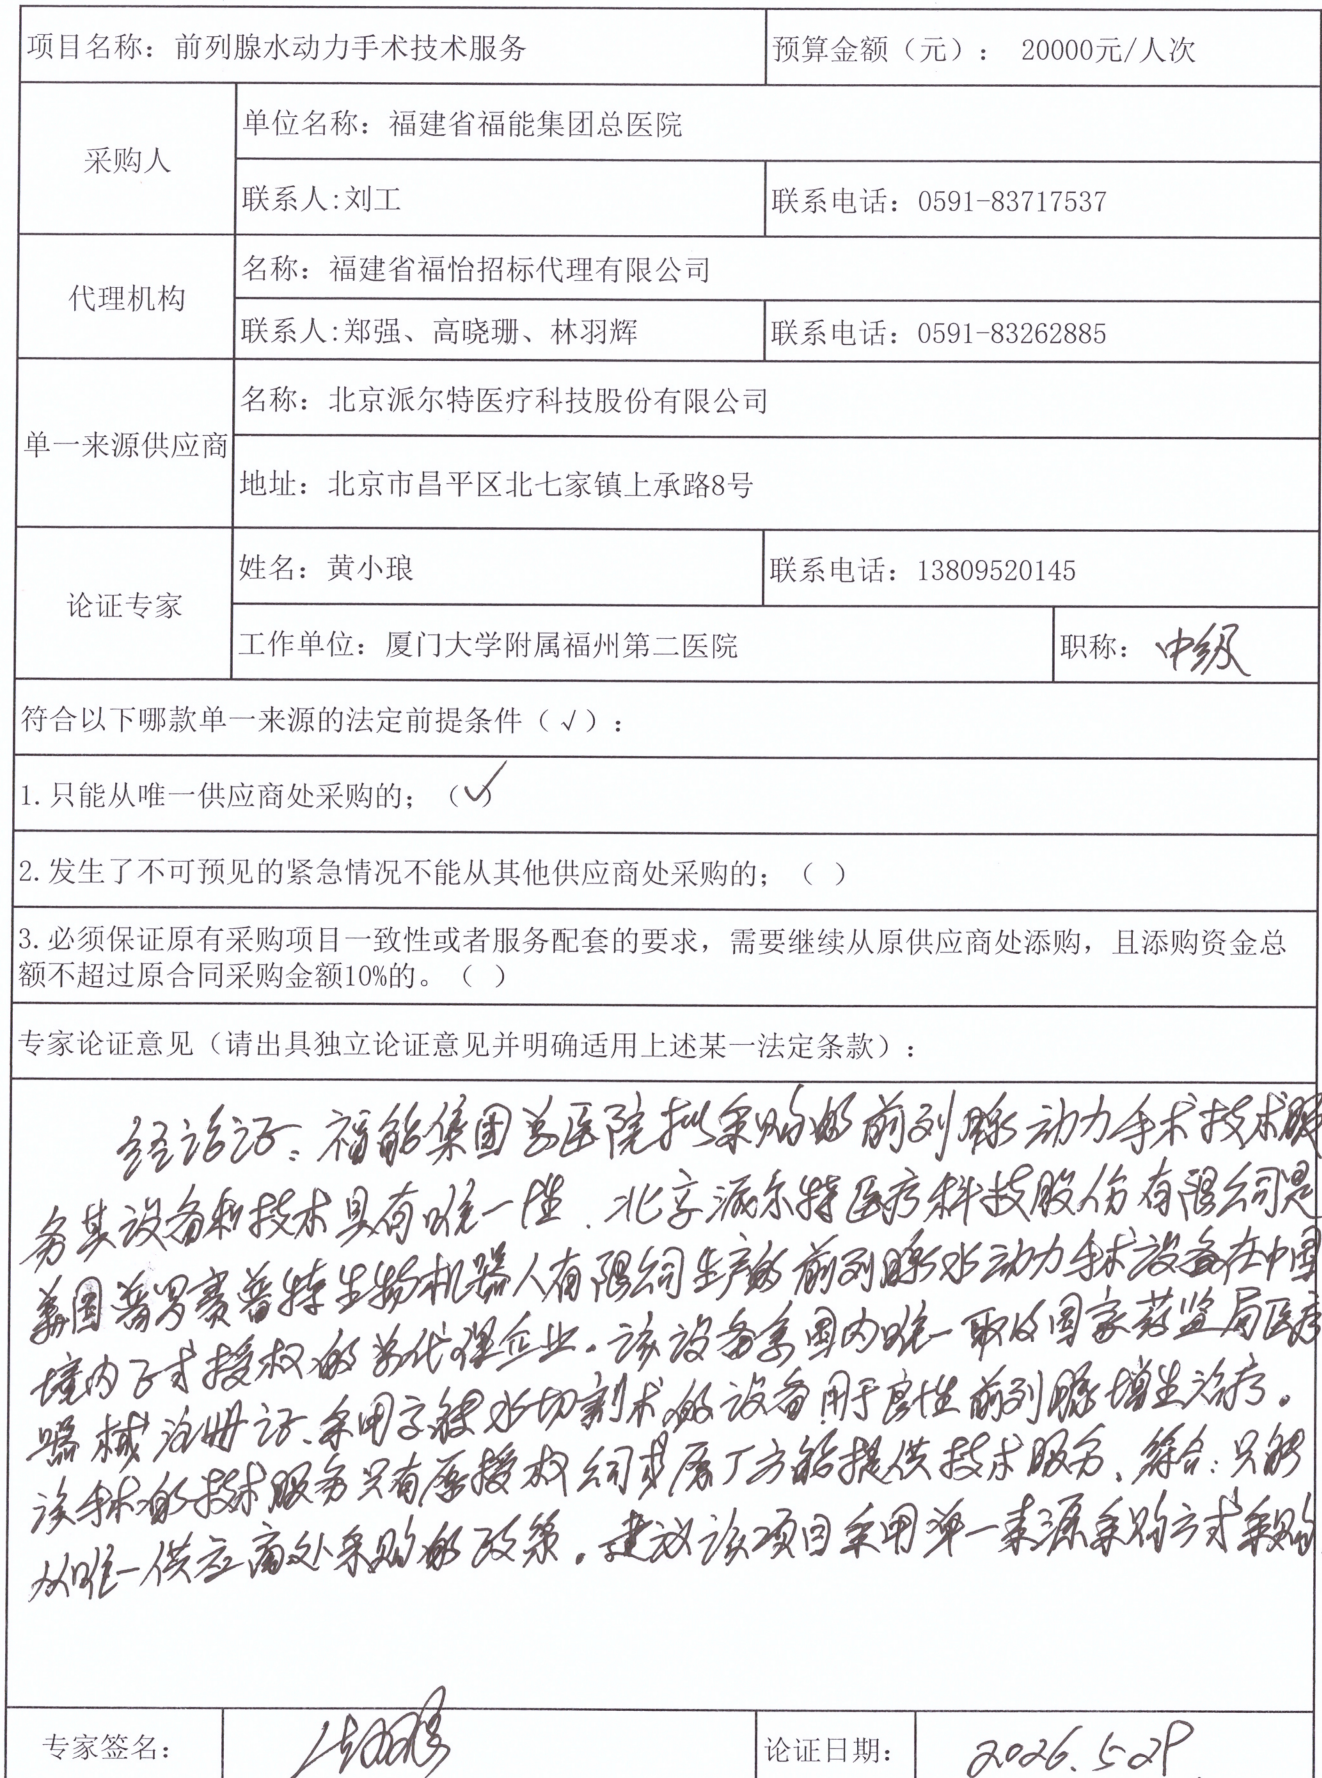 项目名称：前列腺水动力手术技术服务 预算金额（元）： 20000元/人次
采购人
单位名称：福建省福能集团总医院
联系人:刘工 联系电话：0591-83717537
代理机构
名称：福建省福怡招标代理有限公司
联系人:郑强、高晓珊、林羽辉 联系电话：0591-83262885
单一来源供应商
名称：北京派尔特医疗科技股份有限公司
地址：北京市昌平区北七家镇上承路8号
论证专家
姓名：黄小琅 联系电话：13809520145
工作单位：厦门大学附属福州第二医院 职称：中级
符合以下哪款单一来源的法定前提条件（√）：
1.只能从唯一供应商处采购的；（✓）
2.发生了不可预见的紧急情况不能从其他供应商处采购的；（ ）
3.必须保证原有采购项目一致性或者服务配套的要求，需要继续从原供应商处添购，且添购资金总
额不超过原合同采购金额10%的。（ ）
专家论证意见（请出具独立论证意见并明确适用上述某一法定条款）：
经论证、福能集团总医院拟采购的前列腺动力手术技术服
务其设备和技术具有唯一性．北京派尔特医疗科技股份有限公司是
美国普罗赛普特生物机器人有限公司生产的前列腺水动力手术设备在中国
境内正式授权的总代理企业。该设备系国内唯一取得国家药监局医疗
器械注册证、采用高能水切割术的设备用于良性前列腺增生治疗。
该手术的技术服务只有原授权公司或原厂方能提供技术服务、综合：只能
从唯一供应商处采购的政策。建议该项目采用单一来源采购方式采购
专家签名： 论证日期： 2026.5.29